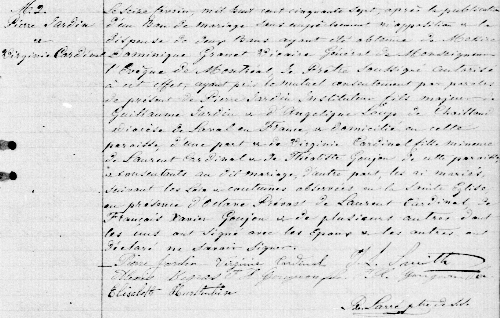 M. 2.
Pierre Jardin
&
Virginie Cardinal
Le seize février, mil huit cent cinquante sept, après la publication
d'un Ban de mariage sans empêchement ni opposition & la
dispense de deux Bans ayant été obtenue de Messire
Dominique Granet Vicaire Général de Monseigneur
l'Evêque de Montréal, Je Prêtre Soussigné autorisé
à cet effet, ayant pris le mutuel consentement par paroles
de présent de Pierre Jardin Instituteur fils majeur de
Guillaume Jardin & d'Angelique de Chaillan
diocèse de Laval en France & domicilié en cette
paroisse, d'une part & de Virginie Cardinal fille mineure
de Laurent Cardinal & de Théotiste Goujon de cette paroisse
& consentants au dit mariage, d'autre part, les ai mariés
suivant les lois & coutumes observées en la Sainte Eglise,
en présence d'Octave de Laurent Cardinal, de
François Xavier Goujon & de plusieurs autres dont
les uns ont signé avec les Epoux & les autres ont
déclaré ne savoir signer.
Pierre Jardin Virginie Cardinal J. L. Smith
F. X. Goujon
Elisabeth
ptre de SS.